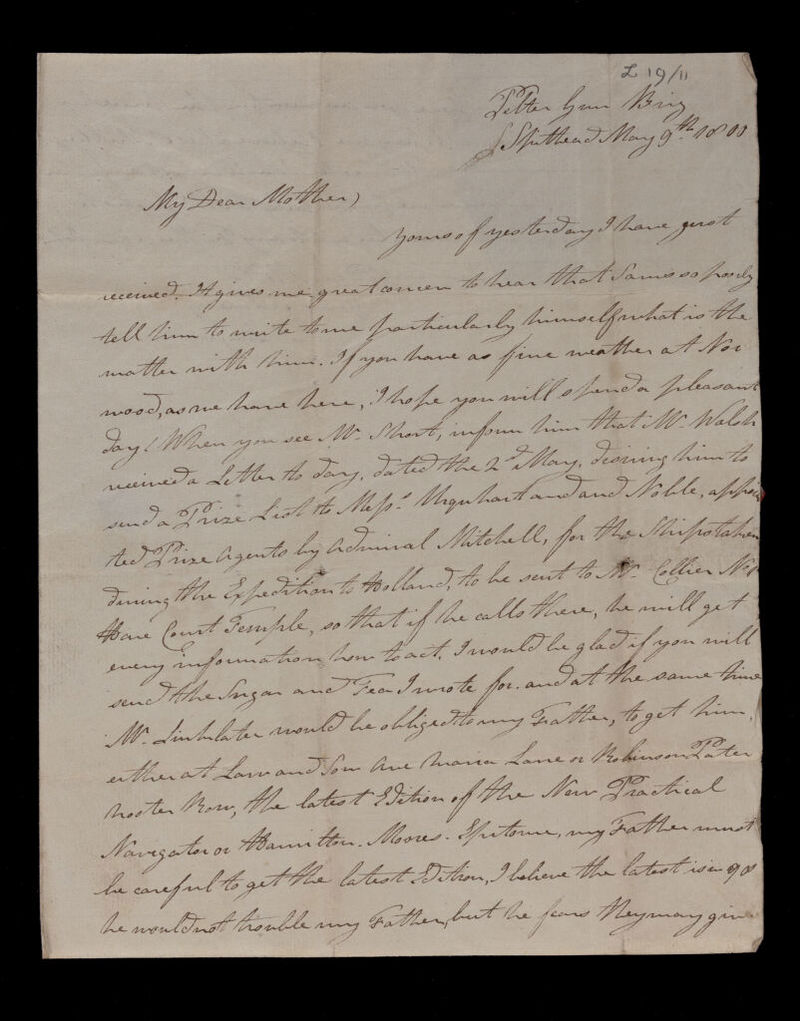 L 19/11
Pelter Gun Brig
Spithead May 9th. 1800
My Dear Mother,
Yours of yesterday I have just
received. It gives me great concern to hear that James is so poorly
tell him to write to me particularly himself what is the
matter with him. If you have as fine weather at Nor
wood, as we have here, I hope you will spend a pleasant
day! When you see Mr. Short, inform him that Mr. Walsh
received a Letter to day, dated the 2d May, desiring him to
send a Prize List to Messrs. Urquhart and and Noble, appoin
ted Prize Agents by Admiral Mitchell, for the Ships taken
during the Expedition to Holland, to be sent to Mr. Collier No 1
Hare Court Temple, so that if he calls there, he will get
every information how to act. I would be glad if you will
send the Sugar and Tea I wrote for. and at the same time
Mr. Linklater would be obliged to my Father, to get him,
either at Law and Son Ave Maria Lane or Robinson Pater
noster Row, the latest Edition of the New Practical
Navigator or Hamilton. Moores. Epitome, my Father must
be careful to get the latest Edition, I believe the latest is in 98
he would not trouble my Father, but he fears they may give